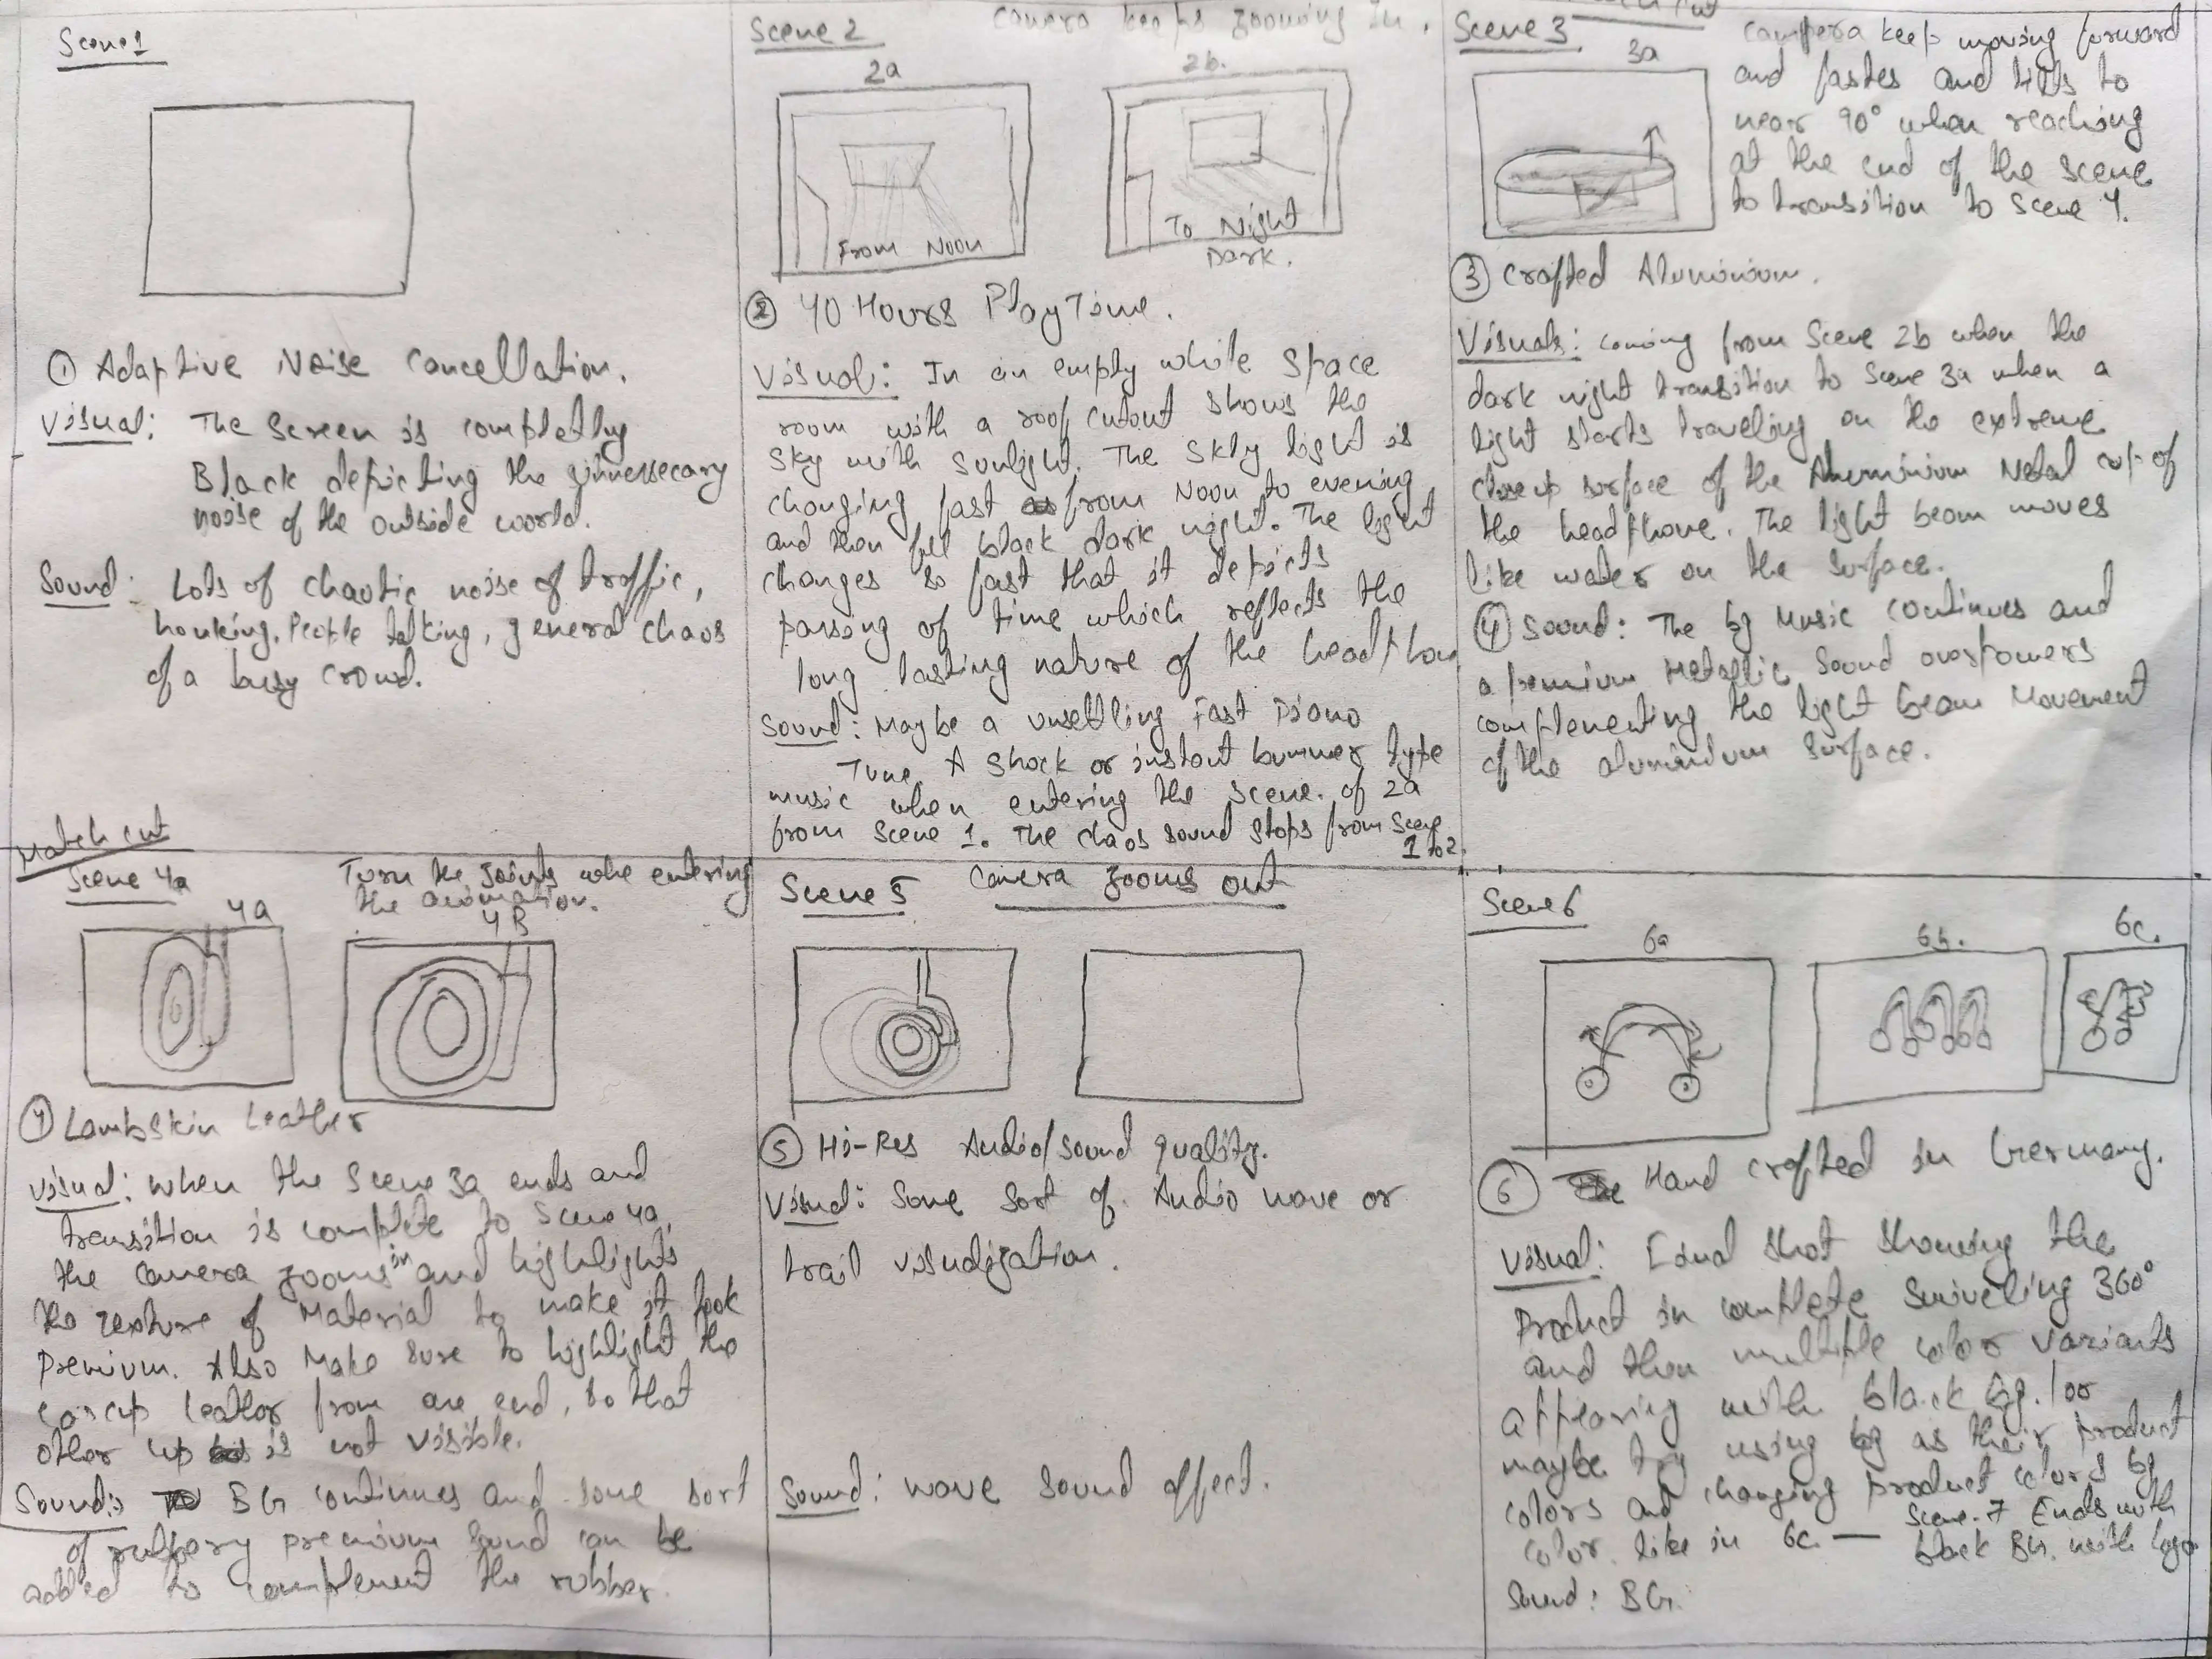 Scene 1
① Adaptive Noise Cancellation.
Visual: The screen is completly
Black depicting the unnessecary
noise of the outside world.
Sound: Lots of chaotic noise of traffic,
honking, People talking, general chaos
of a busy crowd.
Scene 2
Camera keeps zooming in.
2a
2b.
From Noon
To Night
Dark.
② 40 Hours PlayTime.
Visual: In an empty white space
room with a roof cutout shows the
sky with sunlight. The sky light is
changing fast from Noon to evening
and then full black dark night. The light
changes so fast that it depicts
passing of time which reflects the
long lasting nature of the headphon
Sound: Maybe a unsettling fast Piano
Tune. A shock or instant bummer type
music when entering the scene of 2a
from Scene 1. The chaos sound stops from Scene
1 to 2.
Match cut
Scene 3
3a
Camera keep moving forward
and faster and tilts to
near 90° when reaching
at the end of the scene
to transition to Scene 4.
③ Crafted Aluminium.
Visuals: coming from Scene 2b when the
dark night transition to Scene 3a when a
light starts traveling on the extreme
closeup surface of the Aluminium Metal cup of
the headphone. The light beam moves
like water on the surface.
④ Sound: The bg Music continues and
a premium Metallic Sound overpowers
complementing the light beam Movement
of the aluminium surface.
Match cut
Scene 4a
Turn the joints while entering
the animation.
4a
4B
④ LambSkin Leather
Visual: when the Scene 3a ends and
transition is complete to Scene 4a,
the camera zooms in and highlights
the texture of Material to make it look
Premium. Also Make sure to highlight the
earcup leather from one end, so that
other cup is not visible.
Sound: BG continues and some sort
of rubbery premium sound can be
added to complement the rubber.
Scene 5
Camera zooms out
⑤ Hi-Res Audio/sound quality.
Visual: Some sort of Audio wave or
trail visualization.
Sound: wave sound effect.
Scene 6
6a
6b.
6c.
⑥ Hand crafted in Germany.
Visual: Final shot showing the
Product in complete swiveling 360°
and then multiple color variants
appearing with black bg. / or
maybe try using bg as their product
colors and changing product colors bg
color like in 6c —
Scene-7 Ends with
black BG. with logo
Sound: BG.